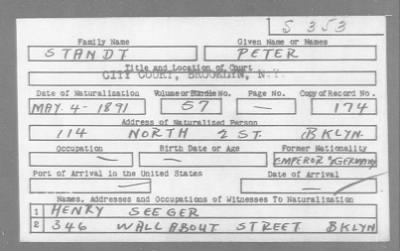 S 353
Family Name Given Name or Names
STANDT PETER
Title and Location of Court
CITY COURT, BROOKLYN, N.Y.
Date of Naturalization Volume or Bundle No. Page No. Copy of Record No.
MAY-4-1891 57 — 174
Address of Naturalized Person
114 NORTH 2 ST. BKLYN.
Occupation Birth Date or Age Former Nationality
— — EMPEROR OF GERMANY
Port of Arrival in the United States Date of Arrival
— —
Names, Addresses and Occupations of Witnesses To Naturalization
1 HENRY SEEGER
2 346 WALLABOUT STREET BKLYN